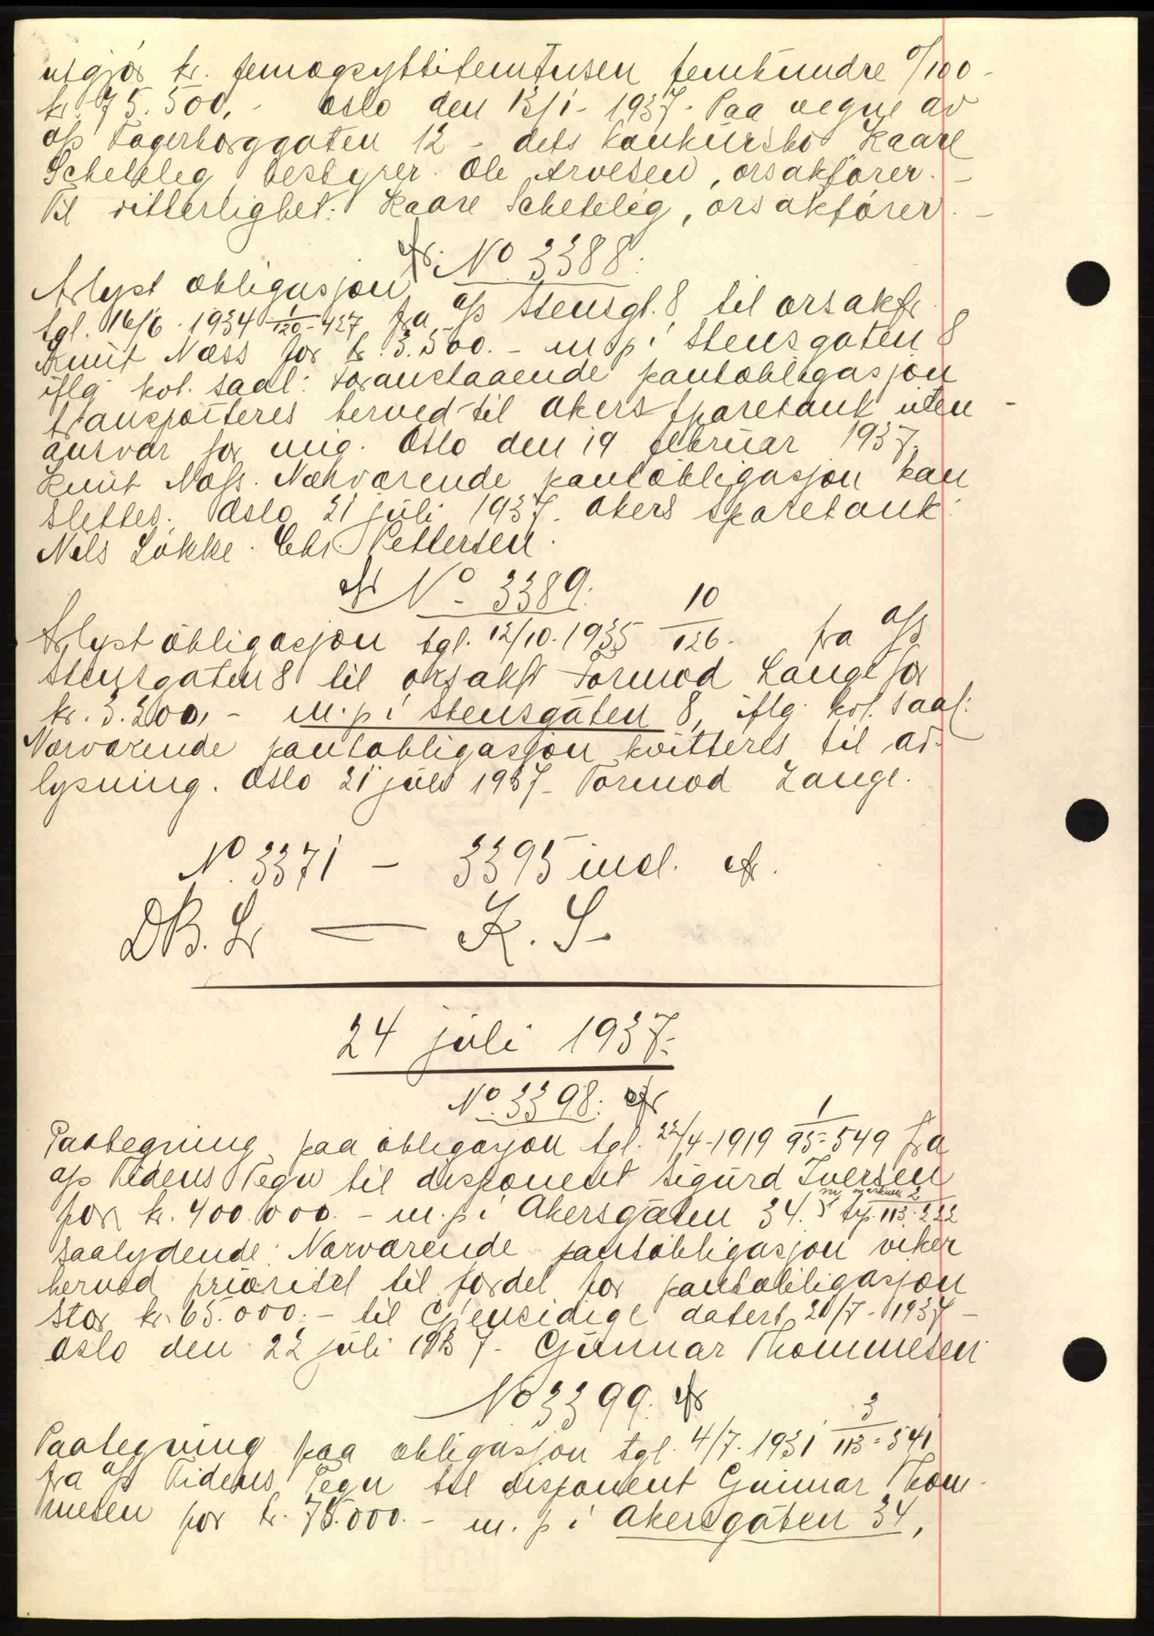 utgjør kr. femogsyttifemtusen femhundre 0/100 -
kr. 75.500,- Oslo den 13/1- 1937. Paa vegne av
a/s Fagerborggaten 12 - dets konkursbo Kaare
Schetelig bestyrer. Ole Arvesen, orsakfører. -
Til vitterlighet: Kaare Schetelig, orsakfører. -
No 3388.
Avlyst obligasjon
tgl. 16/6. 1934 1/120-427 fra a/s Stensgt. 8 til orsakfr.
Knut Næss for kr. 3.500.- m.p. i Stensgaten 8
iflg. kvt. saal: Foranstaaende pantobligasjon
transporteres herved til Akers Sparebank uten -
ansvar for mig. Oslo den 19 februar 1937.
Knut Næss. Nærværende pantobligasjon kan
slettes. Oslo 21 juli 1937. Akers Sparebank.
Nils Løkke. Chr. Pettersen.
No 3389.
Avlyst obligasjon tgl. 12/10. 1935 10/126. fra a/s
Stensgaten 8 til orsakfr Tormod Lange for
kr. 3.200,- m.p. i Stensgaten 8, iflg. kvt. saal:
Nærværende pantobligasjon kvitteres til av-
lysning. Oslo 21 juli 1937- Tormod Lange.
No. 3371 - 3395 incl.
DB. Lr — K. S.
24 juli 1937.
No. 3398.
Paategning paa obligasjon tgl. 22/4-1919 1/95-549 fra
a/s Tidens Tegn til disponent Sigurd Iversen
for kr. 400.000.- m.p. i Akersgaten 34. 2/113-222
saalydende: Nærværende pantobligasjon viker
herved prioritet til fordel for pantobligasjon
stor kr. 65.000.- til Gjensidige datert 20/7-1937-
Oslo den 22 juli 1937- Gunnar Thommesen
No 3399.
Paategning paa obligasjon tgl. 4/7. 1931 3/113-541
fra a/s Tidens Tegn til disponent Gunnar Thom-
mesen for kr. 75.000.- m.p. i Akersgaten 34,